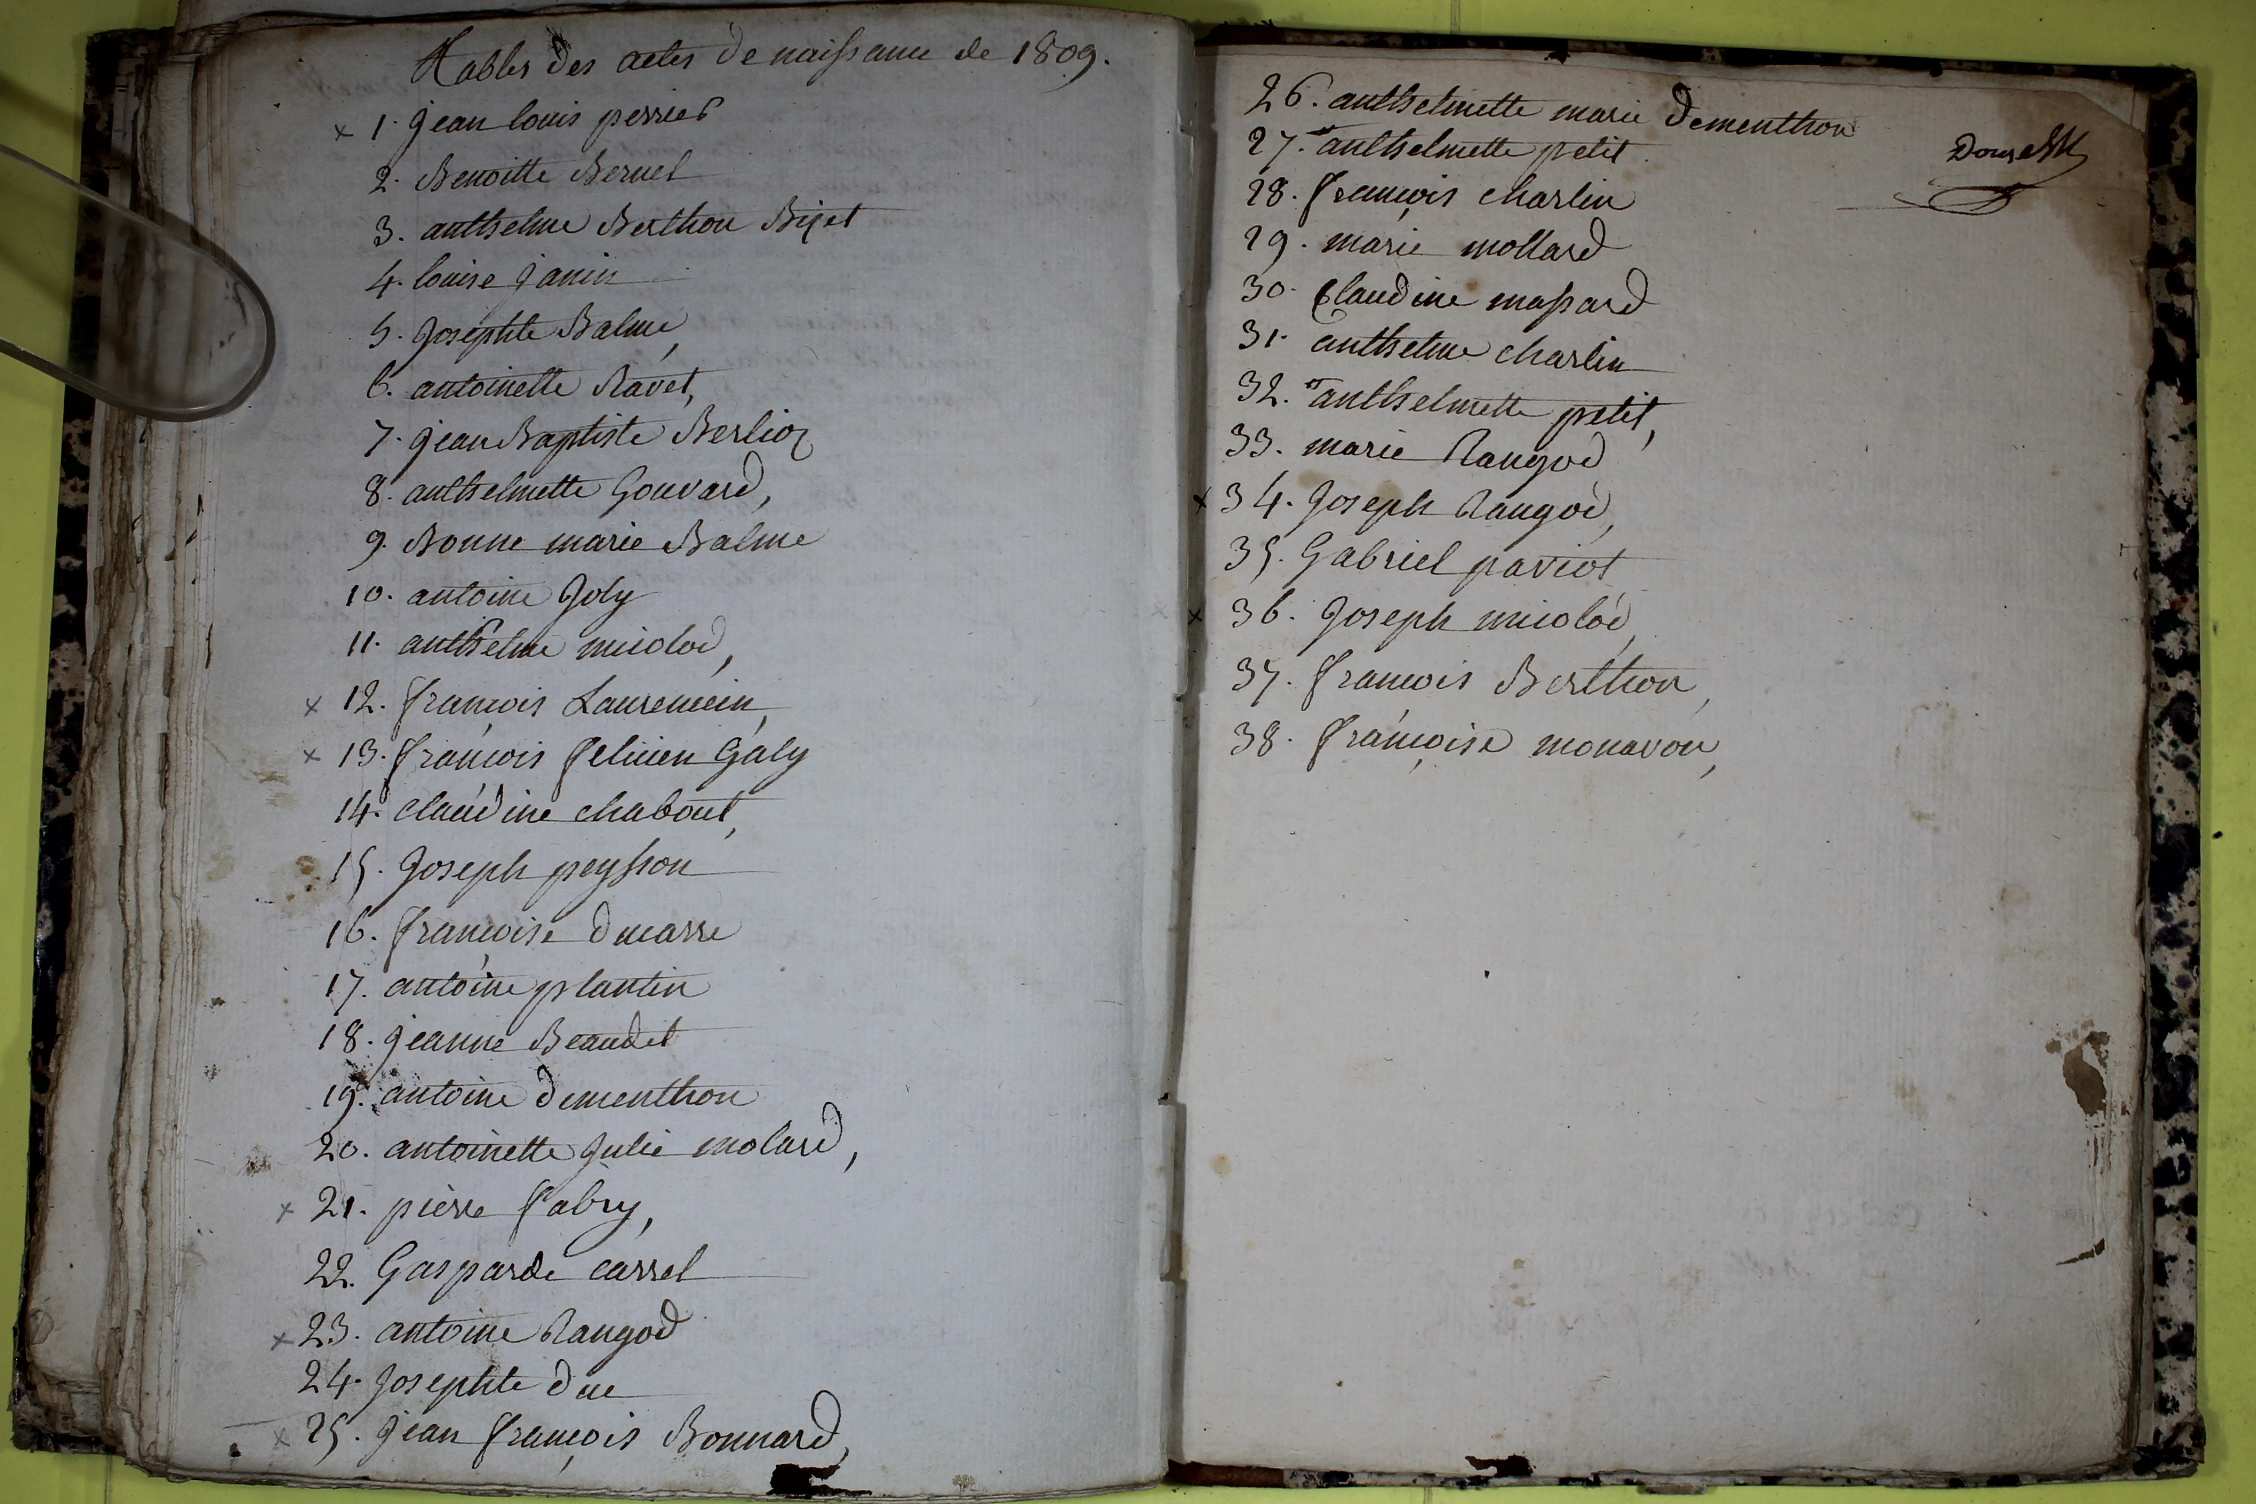 Tables des actes de naissance de 1809.
x 1. jean louis perrier
2. Benoitte Bernel
3. anthelme Berthon Bizet
4. louise janin
5. josephte Balme,
6. antoinette Ravet,
7. jean Baptiste Berlioz
8. anthelmette Gouvard,
9. Bonne marie Balme
10. antoine Joly
11. anthelme micolod,
x 12. françois Laurencin,
x 13. françois felicien Galy
14. claudine chabout,
15. Joseph peysson
16. françoise ducarre
17. antoine plantin
18. jeanne Beaudet
19. antoine dementhon
20. antoinette julie molard,
x 21. pierre fabry,
22. Gasparde carrel
x 23. antoine Rangod
24. josephte duc
x 25. jean françois Bonnard,
26. anthelmette marie dementhon
27. anthelmette petit
28. françois charlin
29. marie mollard
30. Claudine massard
31. anthelme charlin
32. anthelmette petit,
33. marie Rangod
x 34. Joseph Rangod,
35. Gabriel paviot
x 36. Joseph micolod,
37. françois Berthon,
38. françoise monavon,